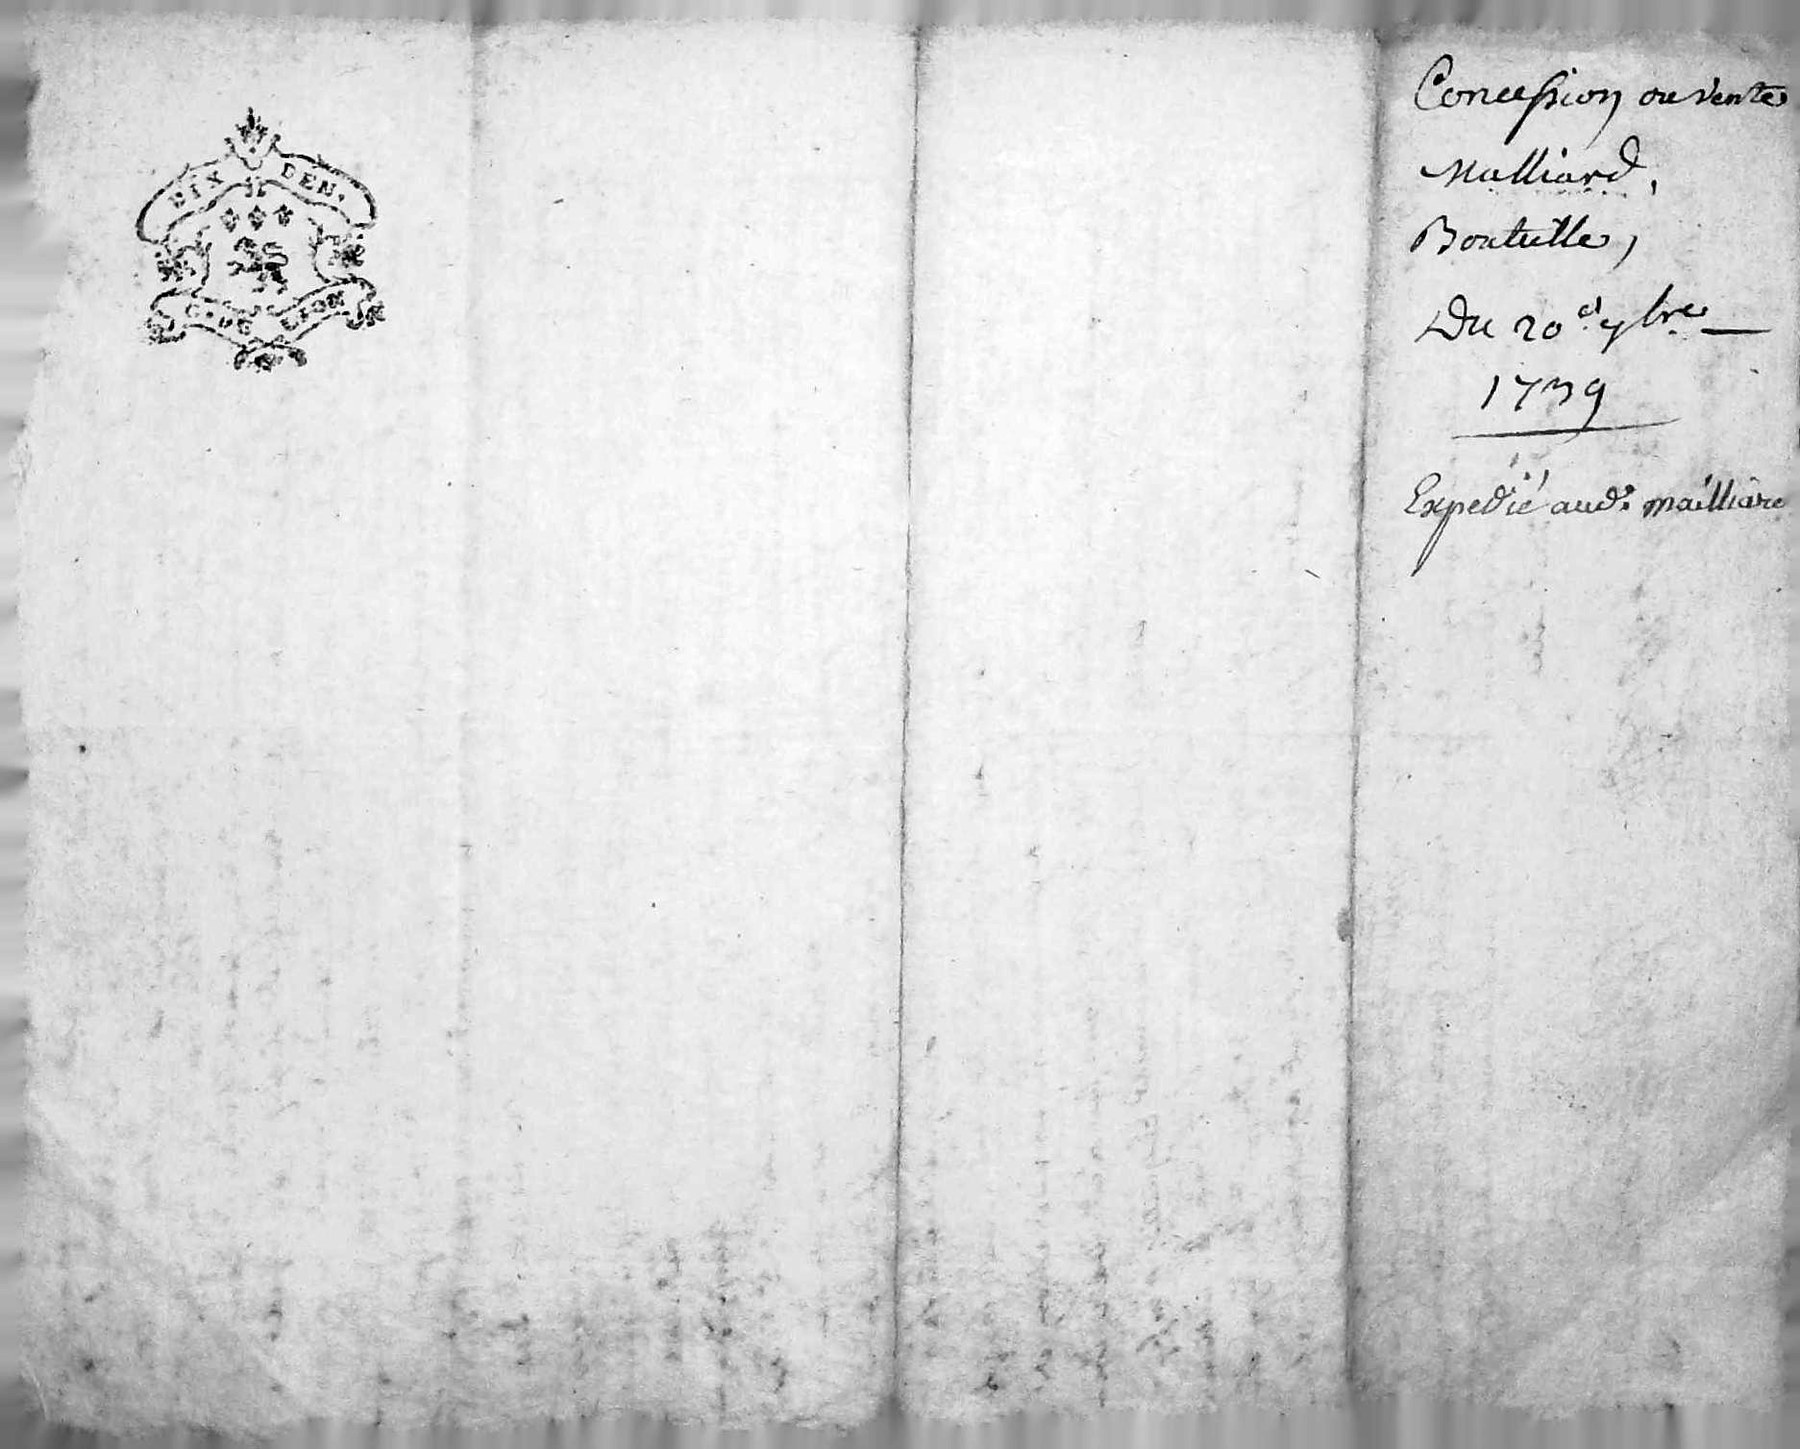 DIX DEN.
G. DE LION
Concession ou vente
Malliard,
Boutelle,
Du 20e 7bre
1739
Expedié aud. mailliare